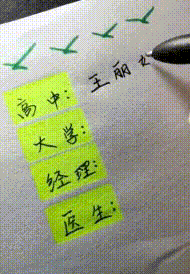 高中: 王丽
大学:
经理:
医生: